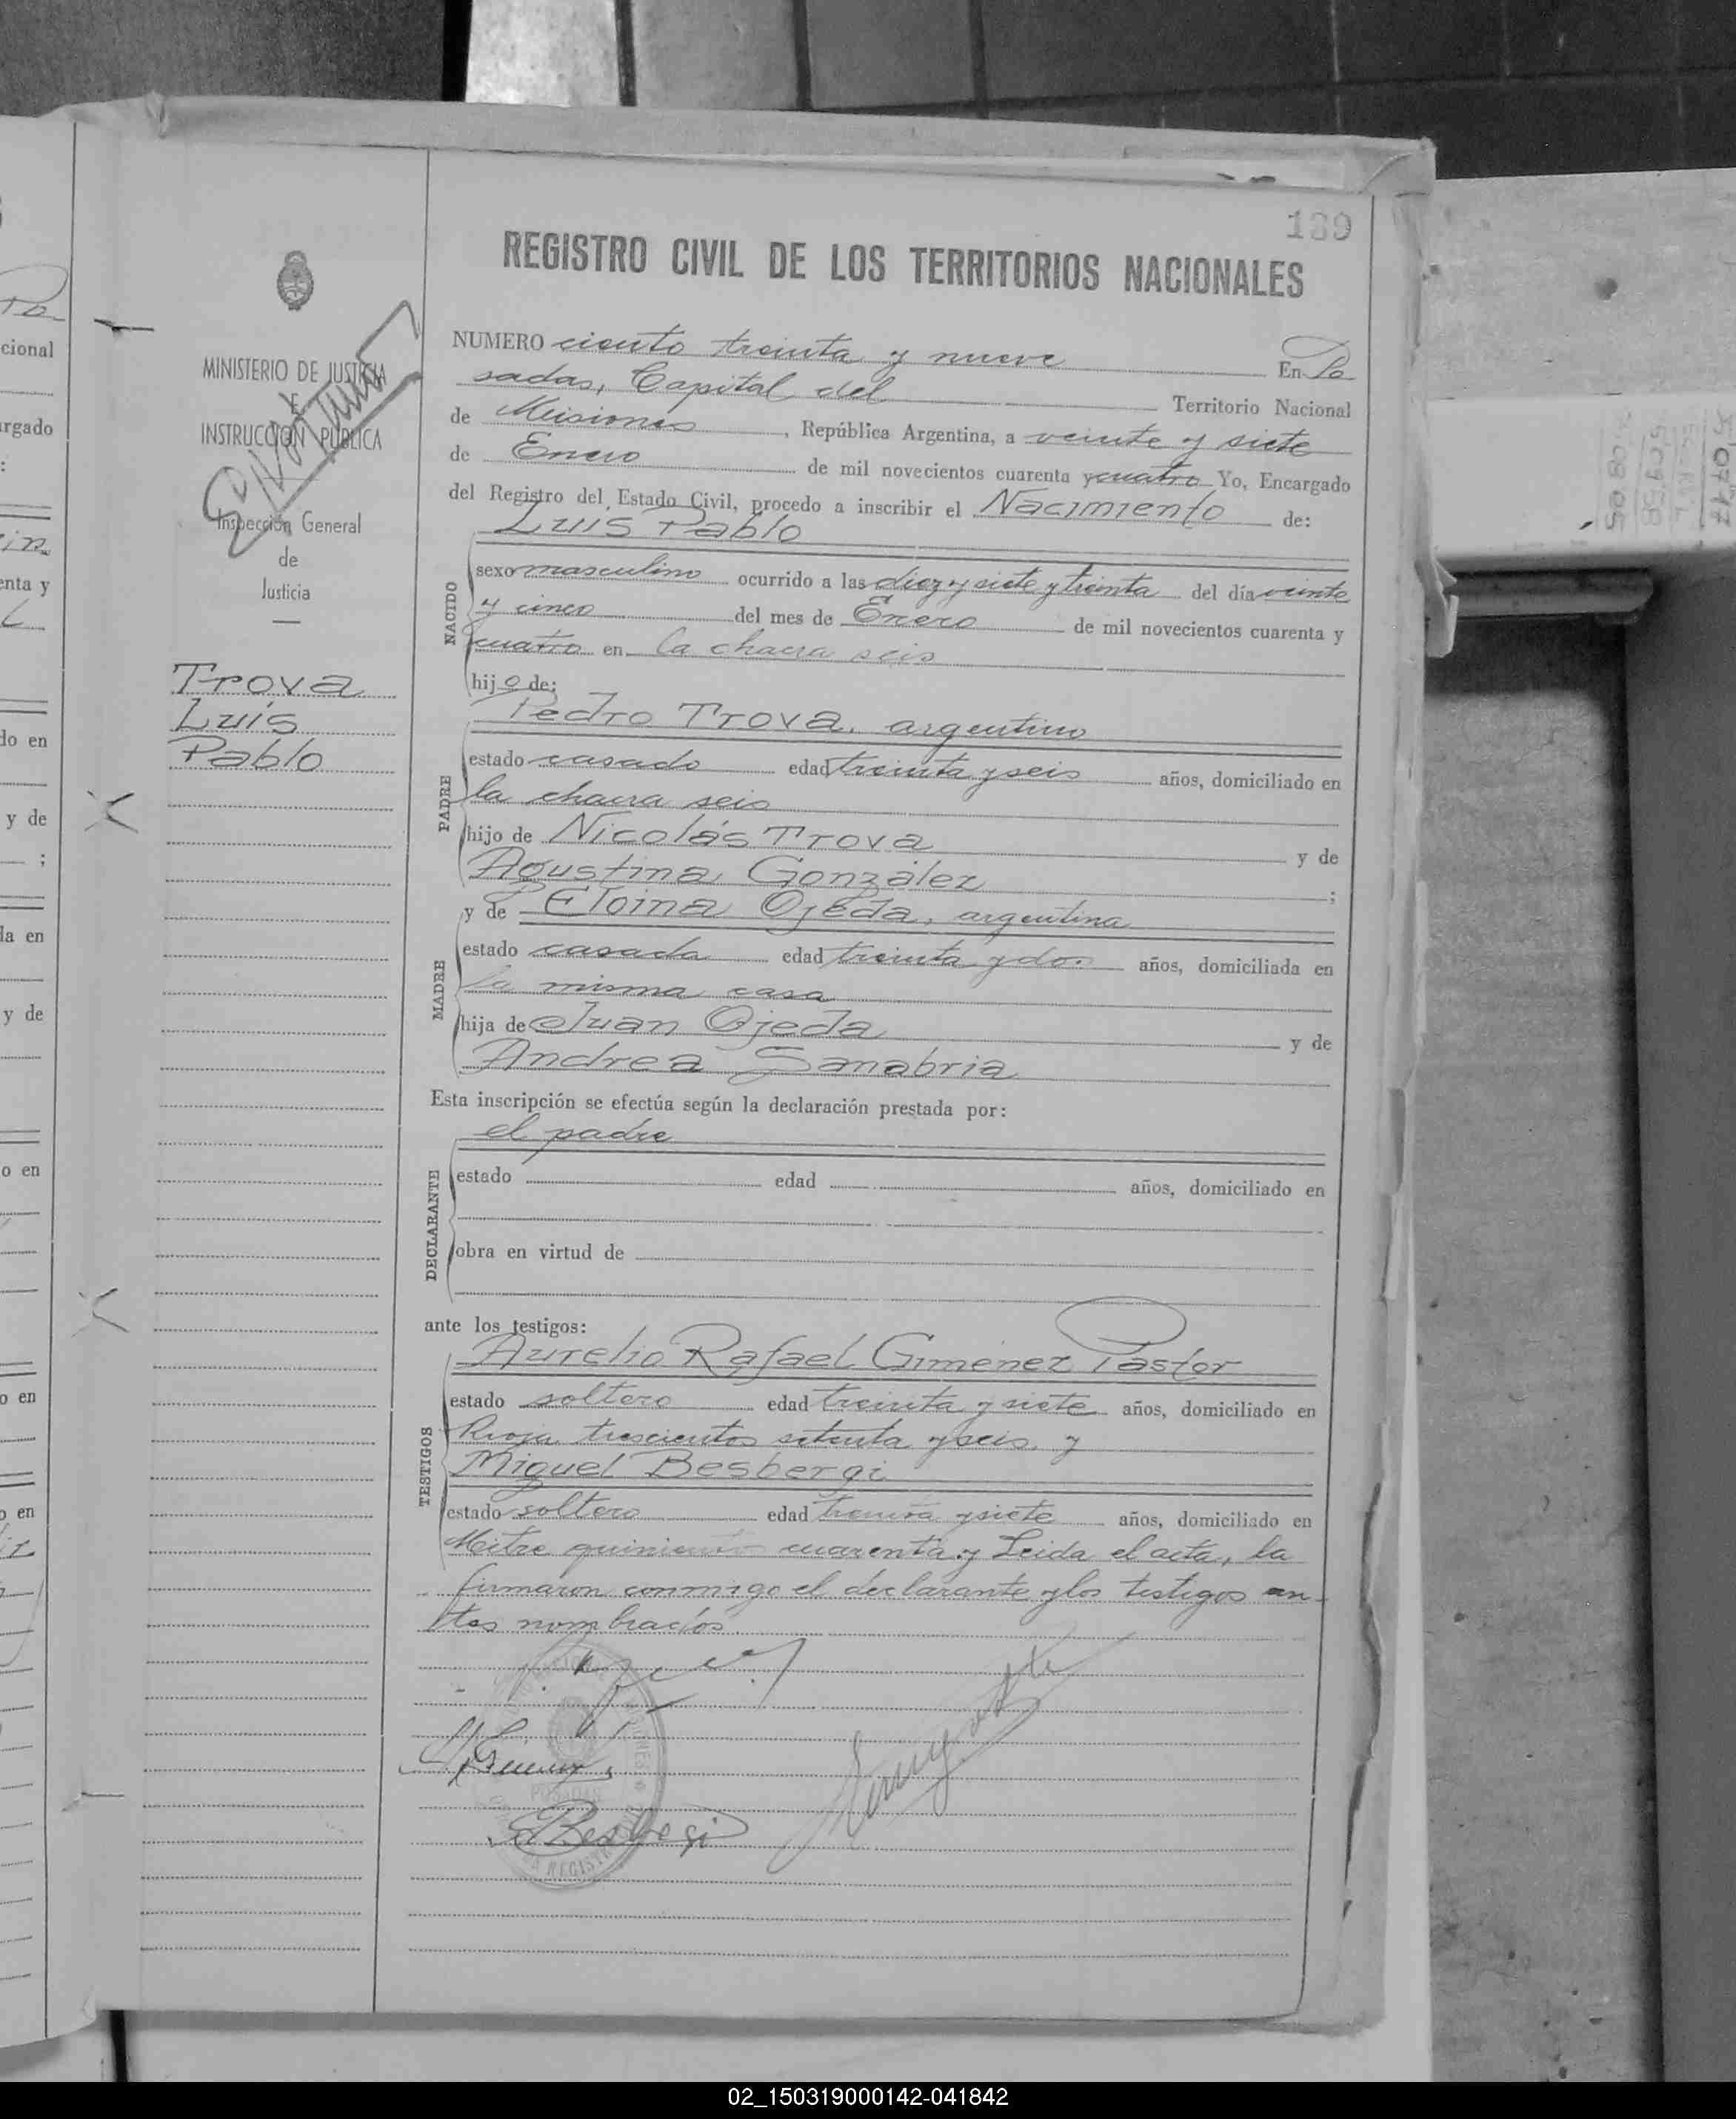 139
REGISTRO CIVIL DE LOS TERRITORIOS NACIONALES
MINISTERIO DE JUSTICIA
E
INSTRUCCIÓN PÚBLICA
Inspección General
de
Justicia
Trova
Luis
Pablo
NUMERO ciento treinta y nueve En Po
sadas, Capital del Territorio Nacional
de Misiones, República Argentina, a veinte y siete
de Enero de mil novecientos cuarenta y cuatro Yo, Encargado
del Registro del Estado Civil, procedo a inscribir el Nacimiento de:
Luis Pablo
NACIDO
sexo masculino ocurrido a las diez y siete y treinta del día veinte
y cinco del mes de Enero de mil novecientos cuarenta y
cuatro en la chacra seis
hijo de:
Pedro Trova, argentino
PADRE
estado casado edad treinta y seis años, domiciliado en
la chacra seis
hijo de Nicolás Trova y de
Agustina González ;
y de Eloina Ojeda, argentina
MADRE
estado casada edad treinta y dos años, domiciliada en
la misma casa
hija de Juan Ojeda y de
Andrea Sanabria
Esta inscripción se efectúa según la declaración prestada por:
el padre
DECLARANTE
estado edad años, domiciliado en
obra en virtud de
ante los testigos:
Aurelio Rafael Giménez Pastor
TESTIGOS
estado soltero edad treinta y siete años, domiciliado en
Rioja trescientos setenta y seis, y
Miguel Besbergi
estado soltero edad treinta y siete años, domiciliado en
Mitre quinientos cuarenta y Leida el acta, la
firmaron conmigo el declarante y los testigos an-
tes nombrados.
POSADAS
Besbergi
02_150319000142-041842